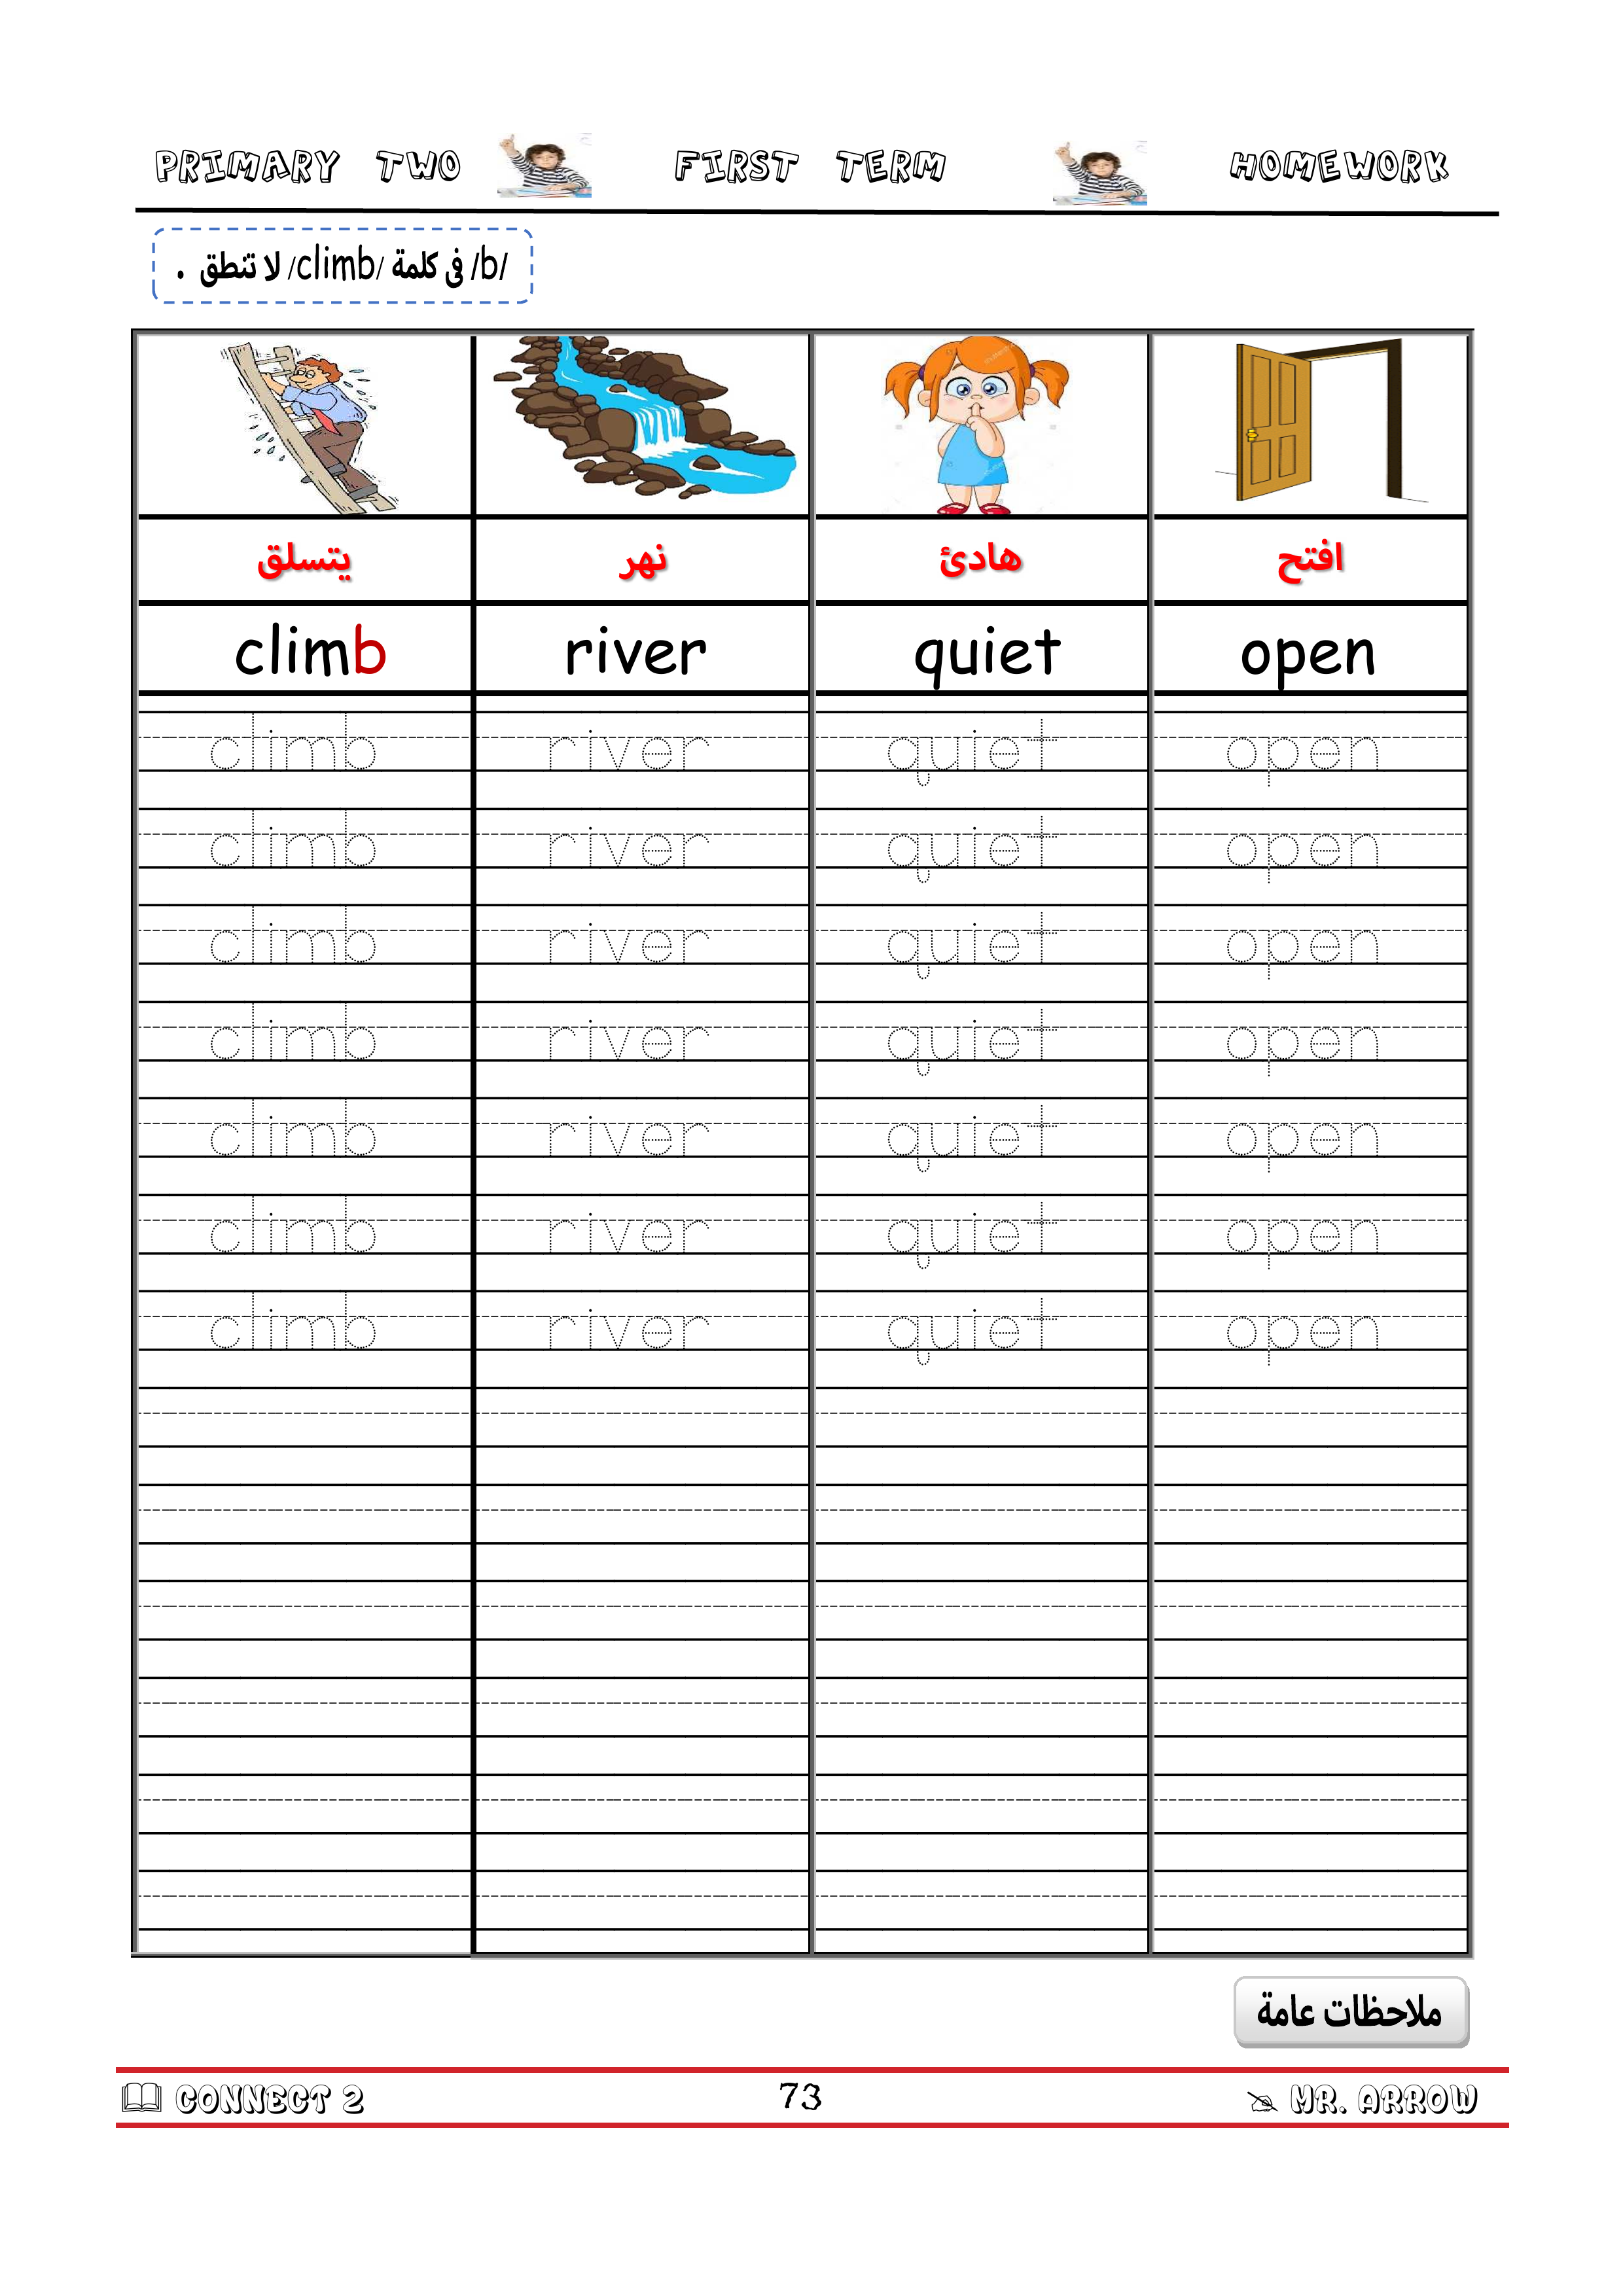 PRIMARY TWO FIRST TERM HOMEWORK
/b/ فى كلمة /climb/ لا تنطق .
يتسلق نهر هادئ افتح
climb river quiet open
climb river quiet open
climb river quiet open
climb river quiet open
climb river quiet open
climb river quiet open
climb river quiet open
climb river quiet open
ملاحظات عامة
CONNECT 2 73 MR. ARROW